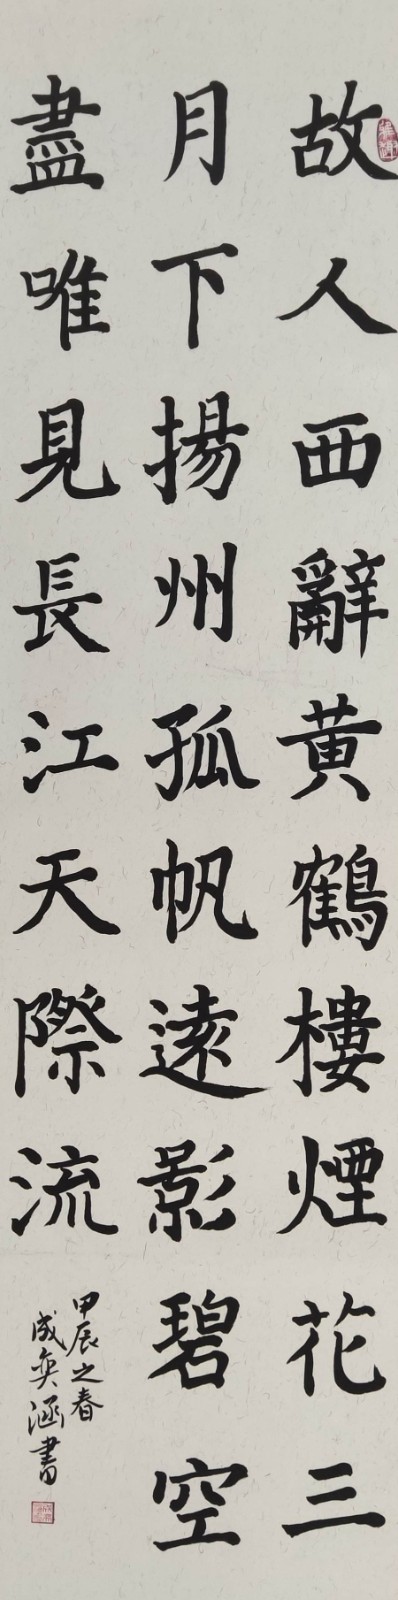 故人西辭黄鶴樓煙花三
月下揚州孤帆遠影碧空
盡唯見長江天際流
甲辰之春
成奕涵書